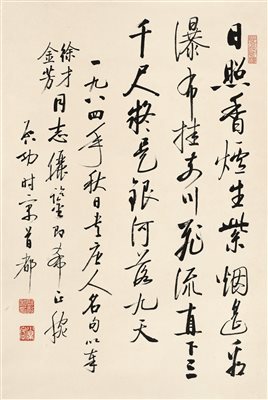 日照香爐生紫烟遙看
瀑布挂前川飛流直下三
千尺疑是銀河落九天
一九八四年秋日書唐人名句以奉
徐才
金芳
同志儷鑒即希正腕
启功时寓首都